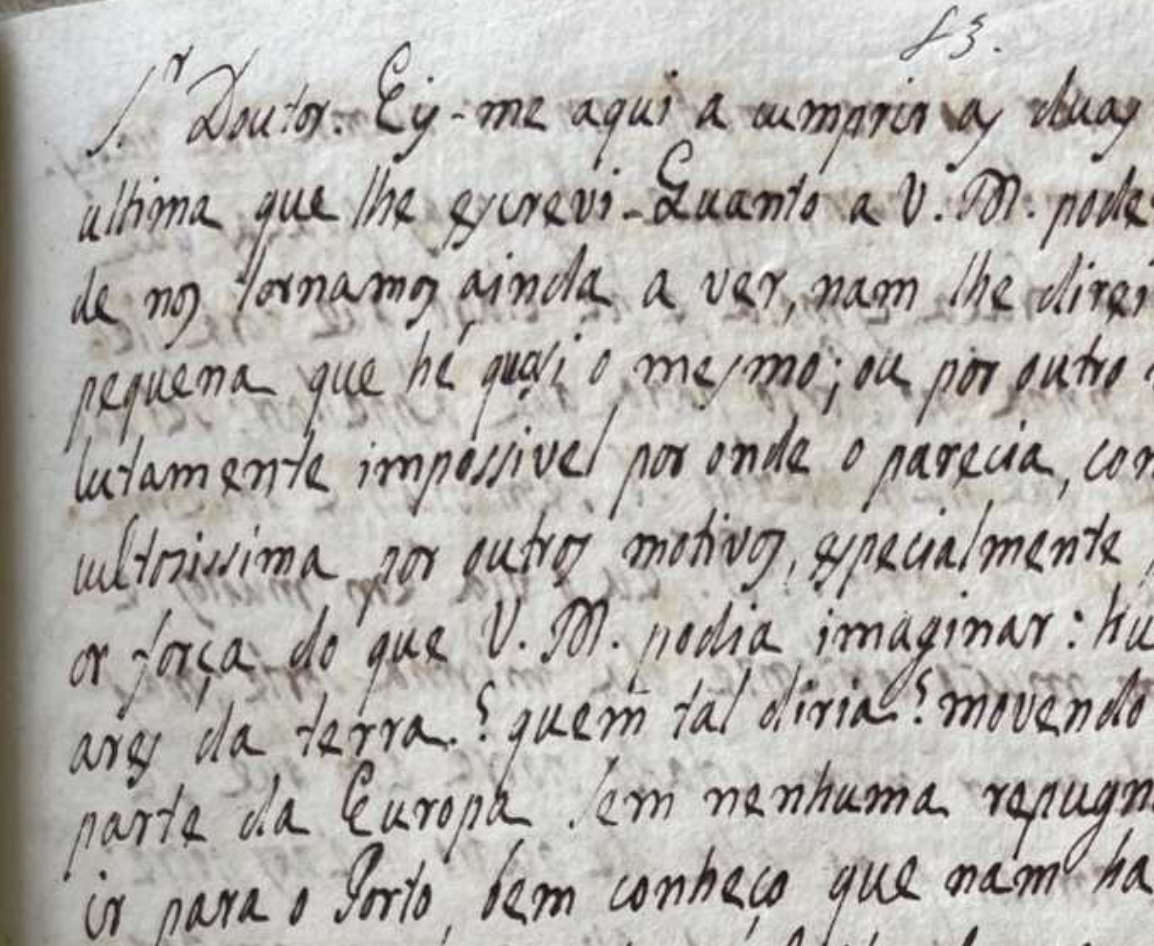 53.
Sr Doutor. Ey-me aqui a cumprir as duas
ultima que lhe escrevi. Quanto a V. M. pode
de nos tornamos ainda a ver, nam lhe direi
pequena que hé quasi o mesmo; ou por outro
lutamente impossivel por onde o parecia, con
cultosissima por outros motivos, especialmente
or força do que V. M. podia imaginar: hu
ares da terra? quem tal diria? movendo
parte da Europa sem nenhuma repugn
ir para o Porto, bem conheço que nam ha